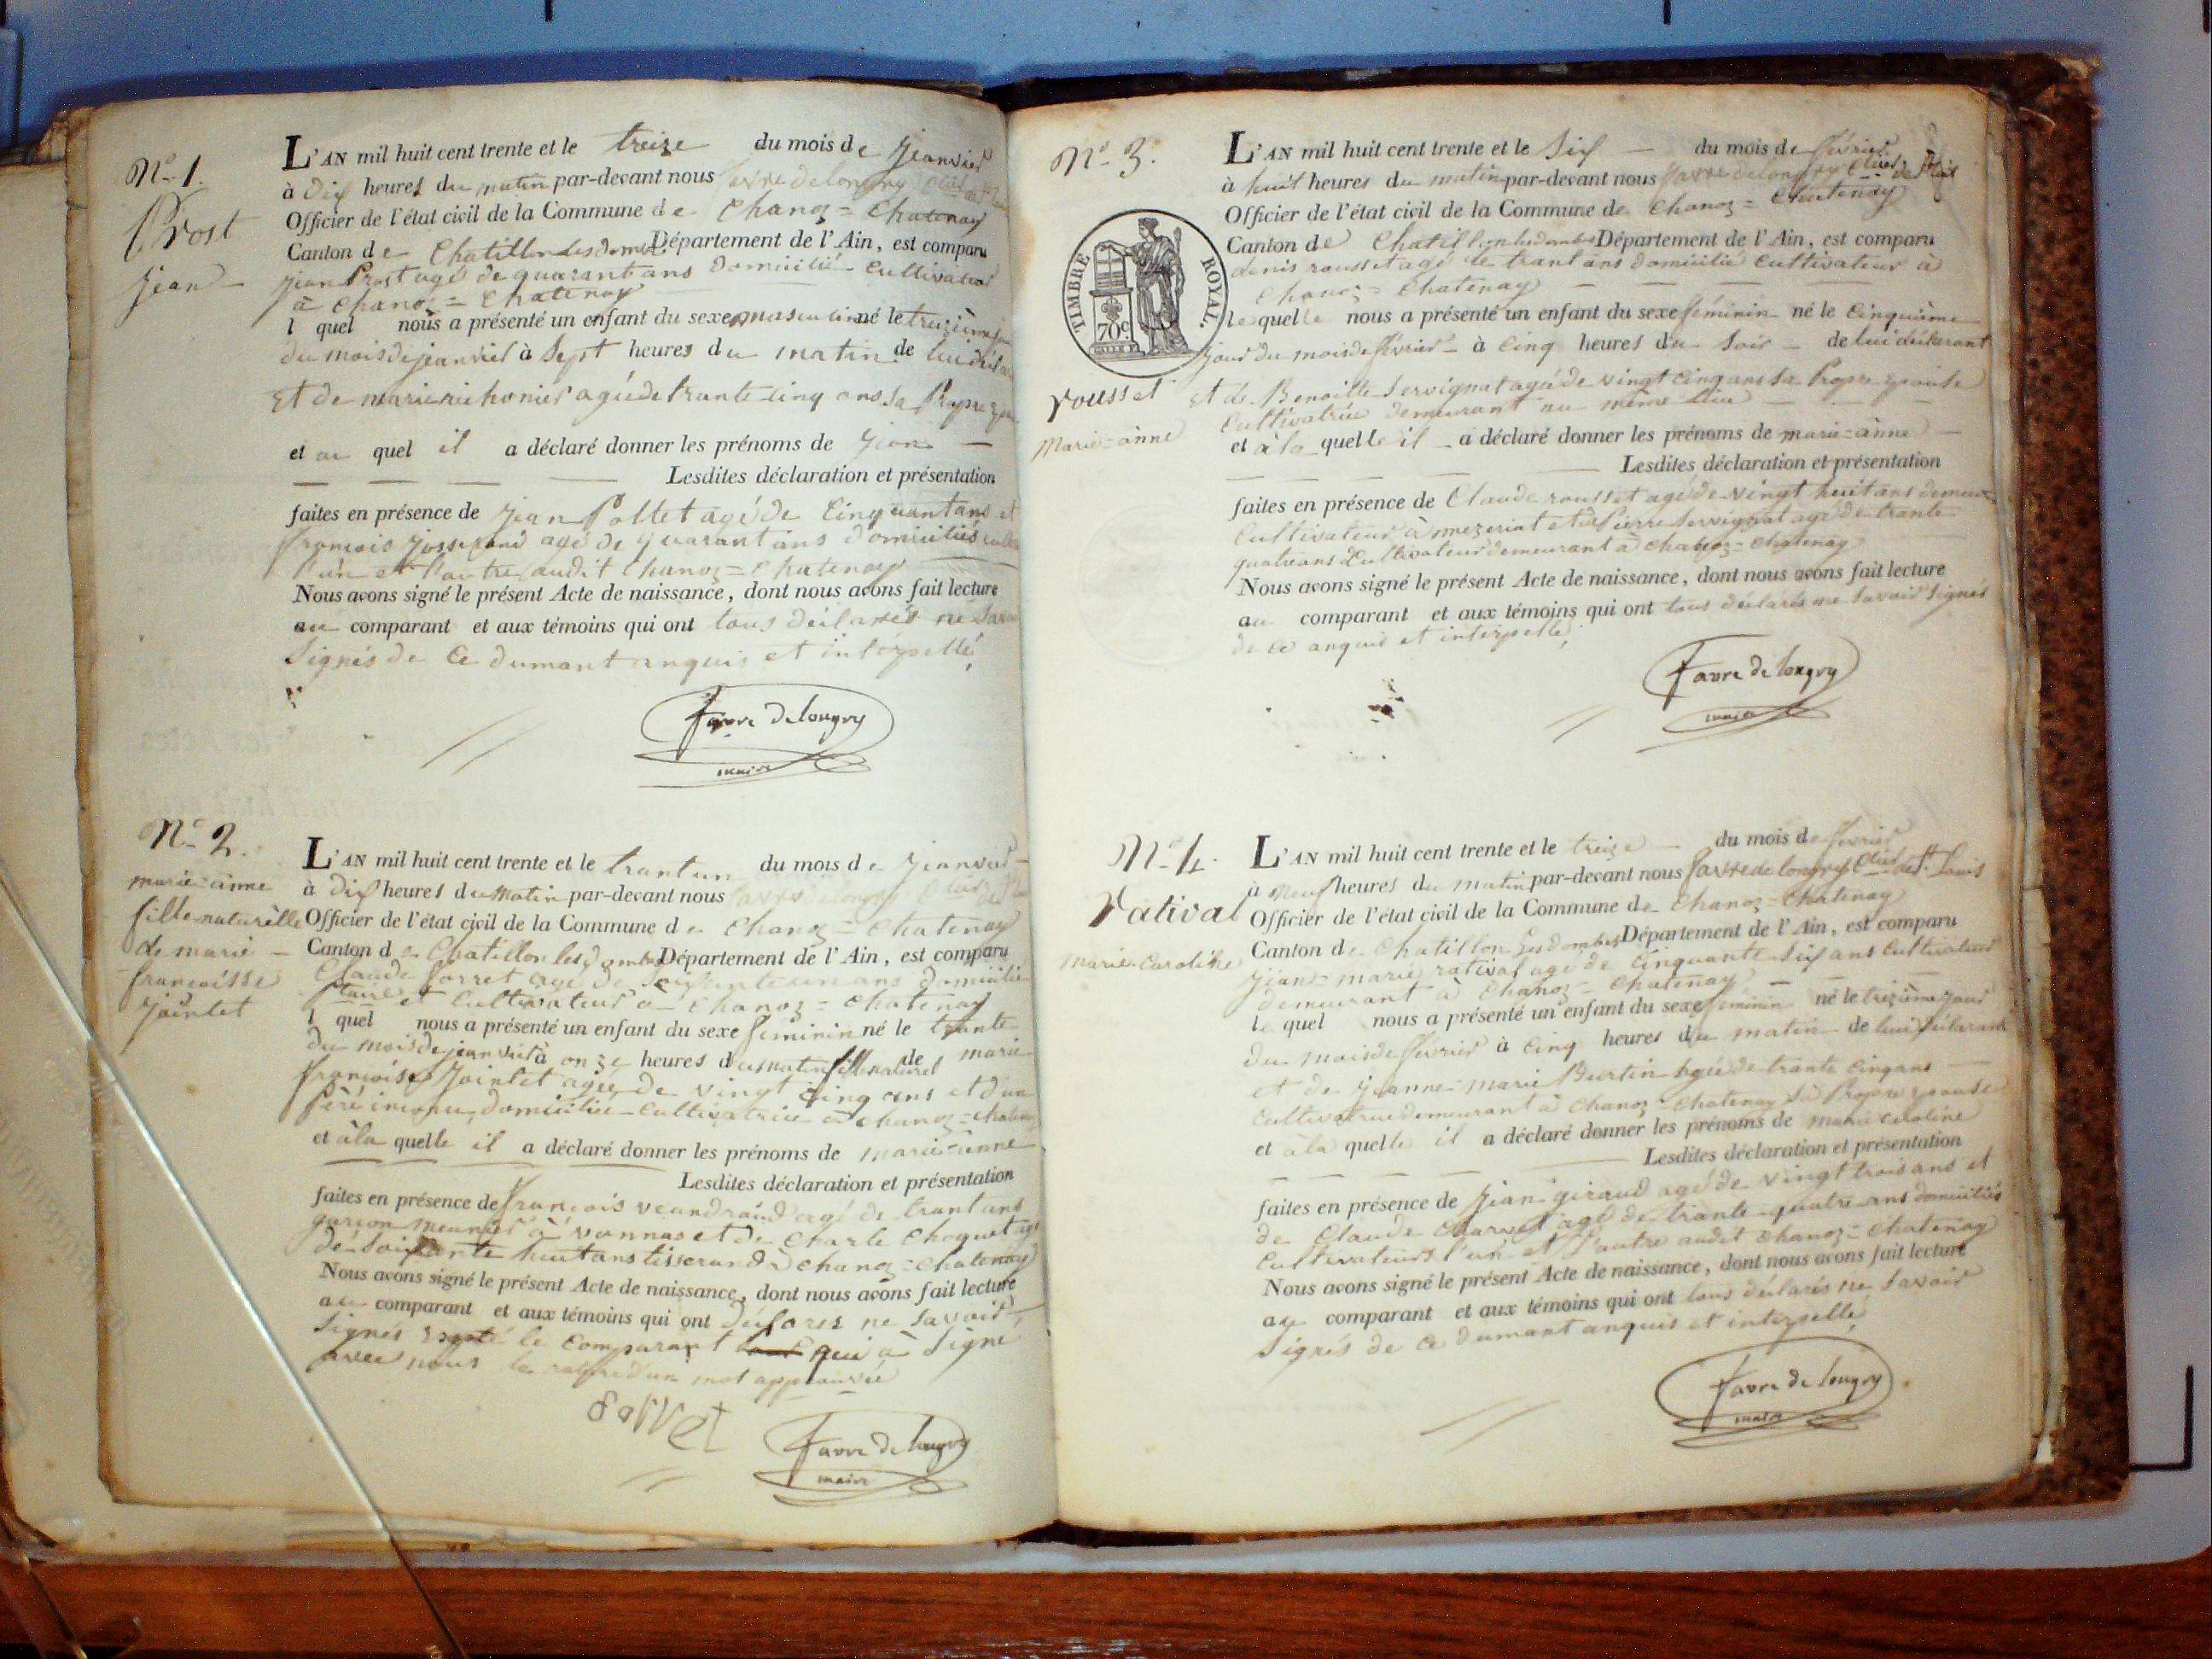 N.° 1.
Prost
Jean
L'AN mil huit cent trente et le treize du mois de jeanvier
à dix heures du matin par-devant nous favre delongry
Officier de l'état civil de la Commune de Chanoz = Chatenay
Canton de Chatillon lesdombes Département de l'Ain, est comparu
jean Prost agé de quarant ans domicilié Cultivateur
à Chanoz = Chatenay
l quel nous a présenté un enfant du sexe masculin né le treizième jour
du mois de jeanvier à Sept heures du matin de lui
Et de marie agé de trante cinq ans Sa Propre
et au quel il a déclaré donner les prénoms de jean
Lesdites déclaration et présentation
faites en présence de jean Pollet agé de Cinquant ans et
francois agé de quarant ans domiciliés
l'un et l'autre audit Chanoz = Chatenay
Nous avons signé le présent Acte de naissance, dont nous avons fait lecture
au comparant et aux témoins qui ont tous déclarés ne
Signés de Ce dumant anquis et interpellé
favre Delongry
maire
N.° 2.
marie=anne
fille naturèlle
de marie
francoisse
jointet
L'AN mil huit cent trente et le trant un du mois de jeanvier
à dix heures du Matin par-devant nous favre delongry
Officier de l'état civil de la Commune de Chanoz = Chatenay
Canton de Chatillon les dombes Département de l'Ain, est comparu
Claude agé de un ans domicilié
et Cultivateur à Chanoz = Chatenay
l quel nous a présenté un enfant du sexe feminin né le trante
du mois de jeanvier à onze heures du matin fille naturel de marie
francoise Jointet agée de vingt cinq ans et d'un
Père inconu, domiciliée Cultivatrice à chanoz = chatenay
et à la quelle il a déclaré donner les prénoms de marie=anne
Lesdites déclaration et présentation
faites en présence de francois agé de trant ans
garcon meunier à vonnas et de Charle Choquet agé
de Soixante huit ans tisserand à chanoz = Chatenay
Nous avons signé le présent Acte de naissance, dont nous avons fait lecture
au comparant et aux témoins qui ont déclarés ne savoir
Signés le Comparant qui à Signé
avec nous la d'un mot approuvée
favre De longry
maire
N.° 3.
TIMBRE ROYAL.
70 c.
rousset
Marie=anne
L'AN mil huit cent trente et le Six du mois de fevrier
à huit heures du matin par-devant nous favre delongry
Officier de l'état civil de la Commune de Chanoz = Chatenay
Canton de Chatillon lesdombes Département de l'Ain, est comparu
denis rousset agé de trant ans domicilié Cultivateur à
Chanoz = Chatenay
le quelle nous a présenté un enfant du sexe féminin né le Cinquième
jour du mois de fevrier à Cinq heures du Soir de lui déclarant
et de Benoitte Servignat agé de vingt Cinq ans Sa Propre epouse
Cultivatrice demeurant au même lieu
et à la quelle il a déclaré donner les prénoms de marie=anne
Lesdites déclaration et présentation
faites en présence de Claude rousset agé de vingt huit ans
Cultivateur à mezeriat et de Pierre Servignat agé de trante
quatre ans Cultivateur demeurant à Chanoz = Chatenay
Nous avons signé le présent Acte de naissance, dont nous avons fait lecture
au comparant et aux témoins qui ont tous déclarés ne savoir Signés
de Ce anquis et interpellé
favre de longry
maire
N.° 4.
ratival
marie=Caroline
L'AN mil huit cent trente et le treize du mois de fevrier
à Neuf heures du matin par-devant nous favre de longry de St. Louis
Officier de l'état civil de la Commune de Chanoz = Chatenay
Canton de Chatillon Les dombes Département de l'Ain, est comparu
jean=marie ratival agé de Cinquante Six ans Cultivateur
demeurant à Chanoz = Chatenay
le quel nous a présenté un enfant du sexe feminin né le treizième jour
du mois de fevrier à Cinq heures du matin de lui déclarant
et de jeanne=marie Burtin agé de trante Cinq ans
Cultivatrice demeurant à Chanoz = Chatenay Sa Propre epouse
et à la quelle il a déclaré donner les prénoms de marie caroline
Lesdites déclaration et présentation
faites en présence de jean giraud agé de vingt trois ans et
de Claude Charvet agé de trante quatre ans domiciliés
Cultivateurs l'un et l'autre audit Chanoz = Chatenay
Nous avons signé le présent Acte de naissance, dont nous avons fait lecture
au comparant et aux témoins qui ont tous déclarés ne Savoir
Signés de Ce dumant anquis et interpellé
favre de longry
maire